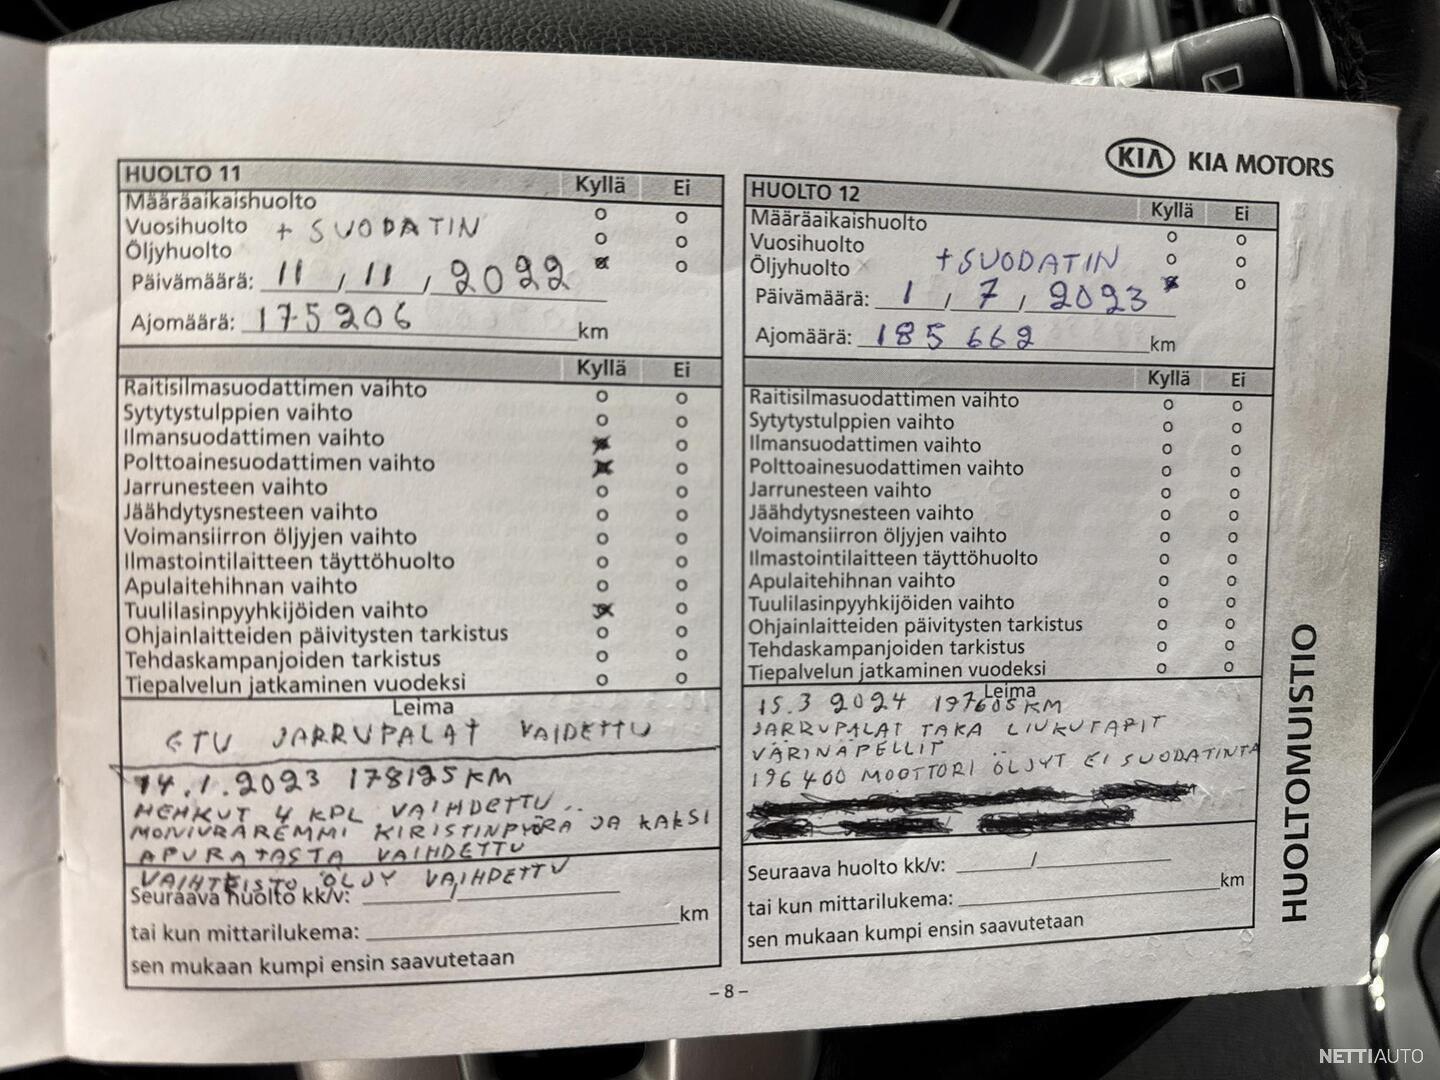 KIA KIA MOTORS
HUOLTO 11 Kyllä Ei
Määräaikaishuolto o o
Vuosihuolto + SUODATIN o o
Öljyhuolto x o
Päivämäärä: 11 / 11 / 2022
Ajomäärä: 175206 km
Kyllä Ei
Raitisilmasuodattimen vaihto o o
Sytytystulppien vaihto o o
Ilmansuodattimen vaihto x o
Polttoainesuodattimen vaihto x o
Jarrunesteen vaihto o o
Jäähdytysnesteen vaihto o o
Voimansiirron öljyjen vaihto o o
Ilmastointilaitteen täyttöhuolto o o
Apulaitehihnan vaihto o o
Tuulilasinpyyhkijöiden vaihto x o
Ohjainlaitteiden päivitysten tarkistus o o
Tehdaskampanjoiden tarkistus o o
Tiepalvelun jatkaminen vuodeksi o o
Leima
ETU JARRUPALAT VAIDETTU
14.1.2023 178125 KM
HEHKUT 4 KPL VAIHDETTU
MONIURAREMMI KIRISTINPYÖRA JA KAKSI
APURATASTA VAIHDETTU
VAIHTEISTO ÖLJY VAIHDETTU
Seuraava huolto kk/v: /
tai kun mittarilukema: km
sen mukaan kumpi ensin saavutetaan
HUOLTO 12 Kyllä Ei
Määräaikaishuolto o o
Vuosihuolto o o
Öljyhuolto x + SUODATIN x o
Päivämäärä: 1 / 7 / 2023
Ajomäärä: 185 662 km
Kyllä Ei
Raitisilmasuodattimen vaihto o o
Sytytystulppien vaihto o o
Ilmansuodattimen vaihto o o
Polttoainesuodattimen vaihto o o
Jarrunesteen vaihto o o
Jäähdytysnesteen vaihto o o
Voimansiirron öljyjen vaihto o o
Ilmastointilaitteen täyttöhuolto o o
Apulaitehihnan vaihto o o
Tuulilasinpyyhkijöiden vaihto o o
Ohjainlaitteiden päivitysten tarkistus o o
Tehdaskampanjoiden tarkistus o o
Tiepalvelun jatkaminen vuodeksi o o
Leima
15.3 2024 197605 KM
JARRUPALAT TAKA LIUKUTAPIT
VÄRINÄPELLIT
196 400 MOOTTORI ÖLJYT EI SUODATINTA
Seuraava huolto kk/v: /
tai kun mittarilukema: km
sen mukaan kumpi ensin saavutetaan
HUOLTOMUISTIO
– 8 –
NETTIAUTO